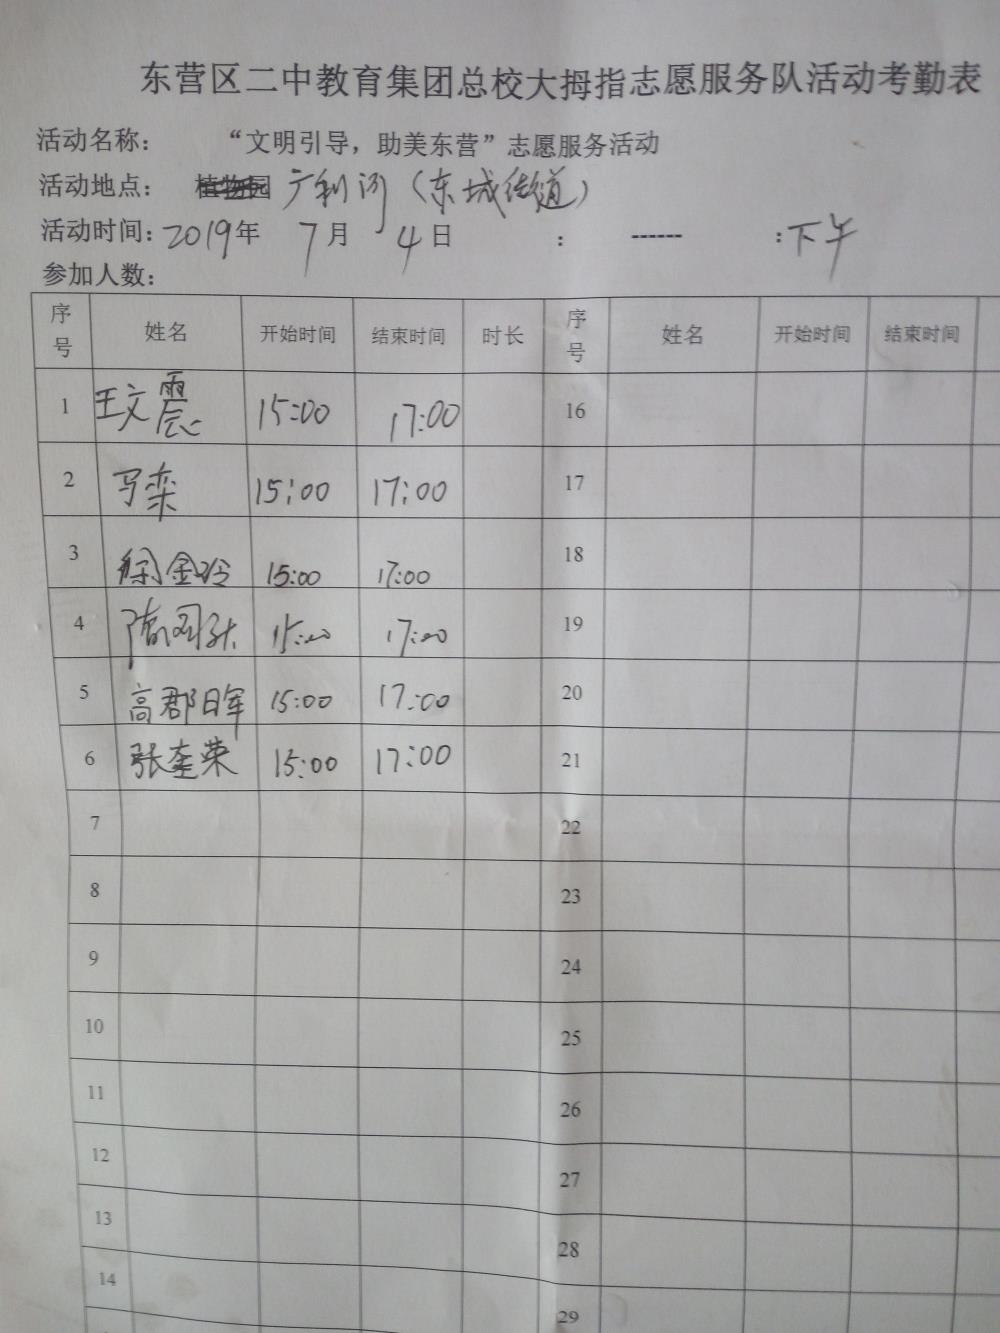 东营区二中教育集团总校大拇指志愿服务队活动考勤表
活动名称： “文明引导，助美东营”志愿服务活动
活动地点： 植物园 广利河（东城街道）
活动时间：2019年 7月 4日 ： ------ ：下午
参加人数：
序号 姓名 开始时间 结束时间 时长 序号 姓名 开始时间 结束时间
1 王文震 15:00 17:00 16
2 马栾 15:00 17:00 17
3 徐金玲 15:00 17:00 18
4 15:00 17:00 19
5 高郡晖 15:00 17:00 20
6 张奎荣 15:00 17:00 21
7 22
8 23
9 24
10 25
11 26
12 27
13 28
14 29